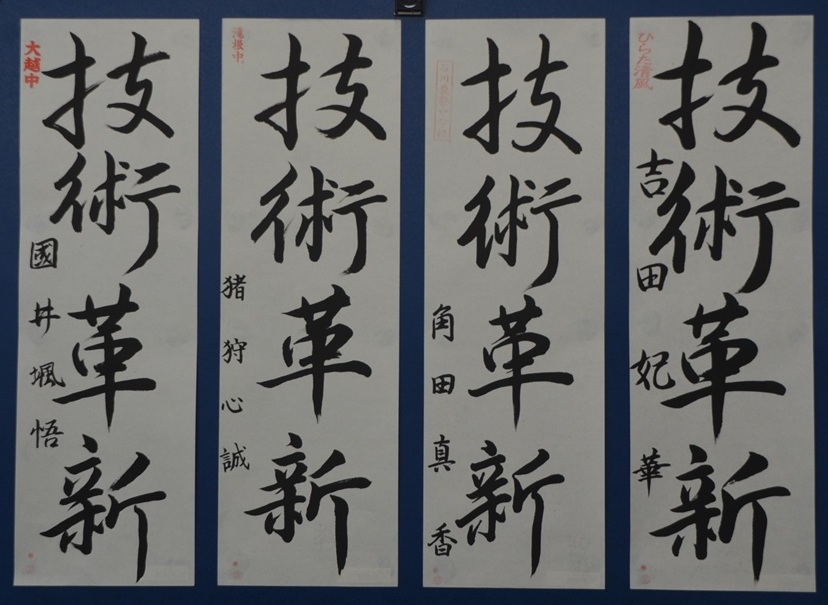 大越中
技術革新
國井颯悟
滝根中
技術革新
猪狩心誠
技術革新
角田真香
ひらた清風
技術革新
吉田妃華